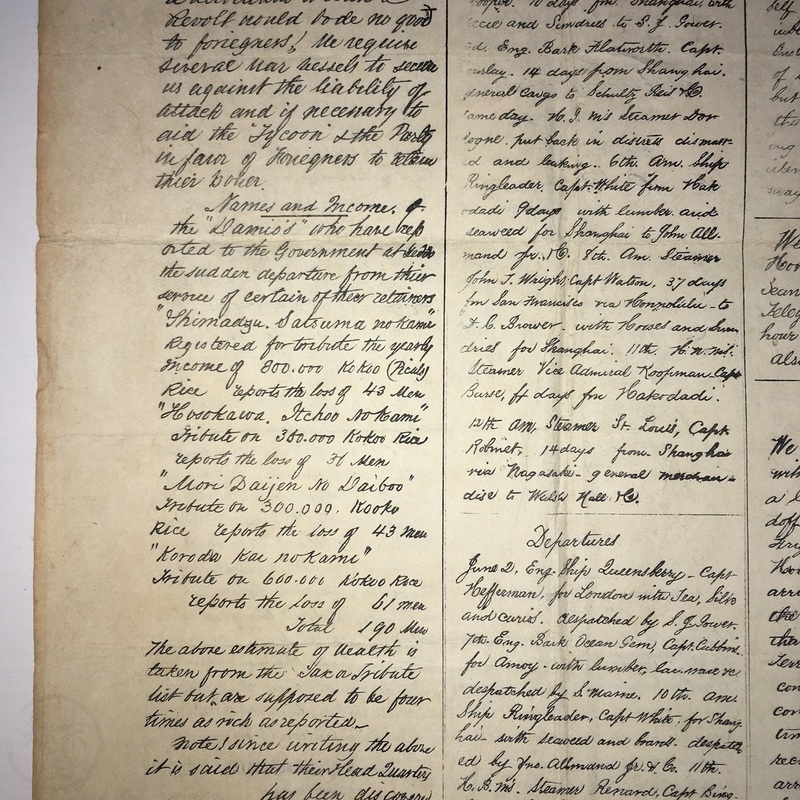 Revolt would bode no good
to foriegners! We require
several War vessels to secure
us against the liability of
attack and if necessary to
aid the Tycoon & the Party
in favor of Foriegners to retain
thier Power.
Names and Income. of
the "Damio's" who have rep
orted to the Government at
the sudden departure from their
service of certain of their retainers
"Shimadzu. Satsuma no kami"
Registered for tribute the yearly
Income of 800.000 Kokoo (Piculs)
Rice reports the loss of 43 Men
"Hosokawa. Itchoo No Kami"
Tribute on 380.000 Kokoo Rice
reports the loss of 31 Men
"Mori Daijen No Daiboo"
Tribute on 300.000. Kooko
Rice reports the loss of 43 men
"Koroda Kai no Kami"
Tribute on 600.000 Kokoo Rice
reports the loss of 61 men
Total 190 Men
The above estimate of Wealth is
taken from the Tax or Tribute
list but are supposed to be four
times as rich as reported.
Note! since writing the above
it is said that their Head Quarters
has been discovere
10 days fm Shanghai, with
and Sundries to S. J. Gower.
Eng. Bark Alatworth. Capt.
14 days from Shanghai.
General Cargo to Schultz Reis & Co.
same day. H. I. M's Steamer Dor
dogne. put back in distress dismast-
ed and leaking. 6th. Am. Ship
Ringleader, Capt. White from Hak
odadi 9 days with lumber and
seaweed for Shanghai to John All-
mand Jr. & Co. 8th. Am. Steamer
John T. Wright, Capt Watson, 37 days
fm San Francisco via Honnolulu - to
F. C. Brower. with Horses and Sun
dries for Shanghai. 11th. H. N. M's.
Steamer Vice Admiral Koopman Capt
Burse, 4 days fm Hakodadi.
12th Am. Steamer St. Louis, Capt.
Robinet, 14 days from Shanghai
via Nagasaki - general merchan-
dise to Walsh Hall & Co.
Departures
June 2, Eng. Ship Queensberry - Capt
Hefferman, for London with Tea, Silk
and curis. despatched by S. J. Gower.
7th. Eng. Bark Ocean Gem, Capt. Cubbins.
for Amoy - with lumber, lac. ware &c
despatched by S. Marne. 10th. Am.
Ship Ringleader, Capt White - for Shang
hai - with seaweed and board. despatch
ed by Jno. Allmand Jr. & Co. 11th.
H. B. M's. Steamer Renard, Capt Bing.